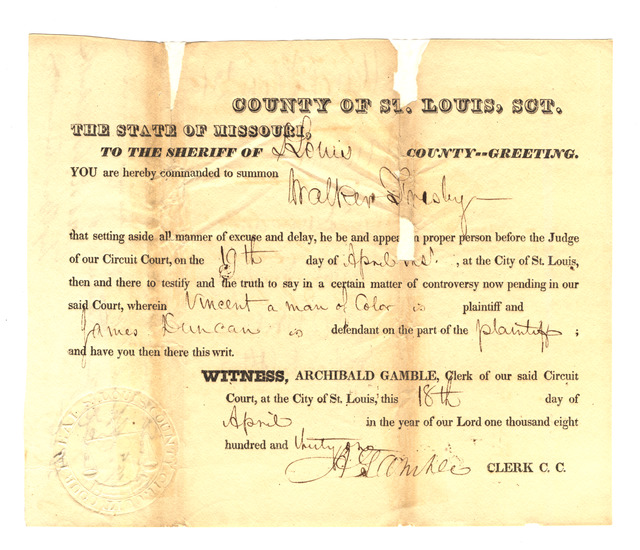 COUNTY OF St. LOUIS, SCT.
THE STATE OF MISSOURI,
TO THE SHERIFF OF St Louis COUNTY--GREETING.
YOU are hereby commanded to summon
Walker
that setting aside all manner of excuse and delay, he be and appear in proper person before the Judge
of our Circuit Court, on the 19th day of April inst. , at the City of St. Louis,
then and there to testify and the truth to say in a certain matter of controversy now pending in our
said Court, wherein Vincent a man of Color is plaintiff and
James Duncan is defendant on the part of the plaintiff ;
and have you then there this writ.
WITNESS, ARCHIBALD GAMBLE, Clerk of our said Circuit
Court, at the City of St. Louis, this 18th day of
April in the year of our Lord one thousand eight
hundred and thirty one
A Gamble CLERK C. C.